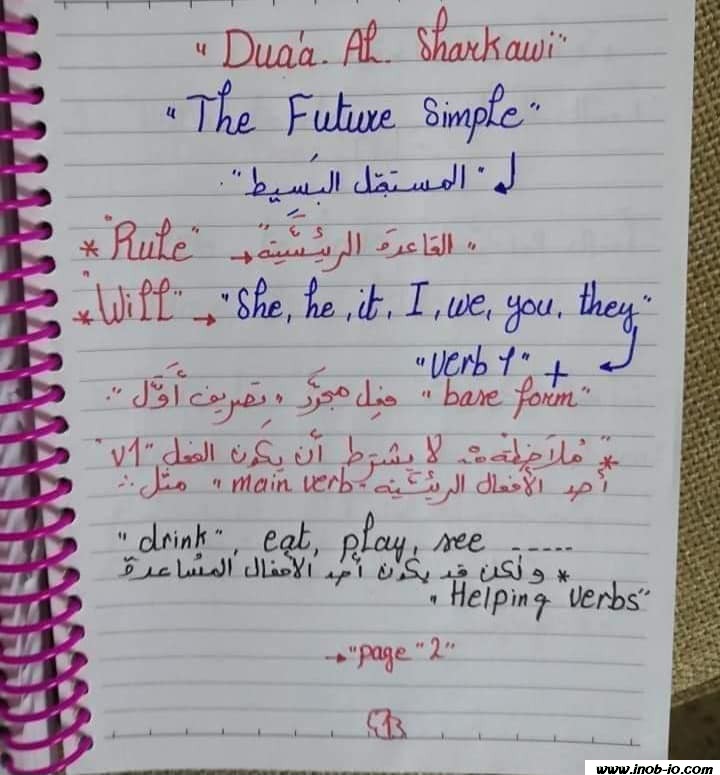 "Dua'a. Al. Sharkawi"
"The Future Simple"
"المستقبل البَسيط".
* "Rule" → "القاعدة الرئيسَّية"
* "Will" → "She, he, it, I, we, you, they"
"verb 1" +
"base form" فِعل مجرَّد، تصريف أوَّل".
* "مُلاحظة: لا يشترط أن يكون الفعل "v1"
أحد الأفعال الرئيسَّية "main verb" مثل:
"drink", eat, play, see -----
* ولكن قد يكون أحد الأفعال المسُاعدة
"Helping verbs"
→ "page "2"
www.inob-io.com